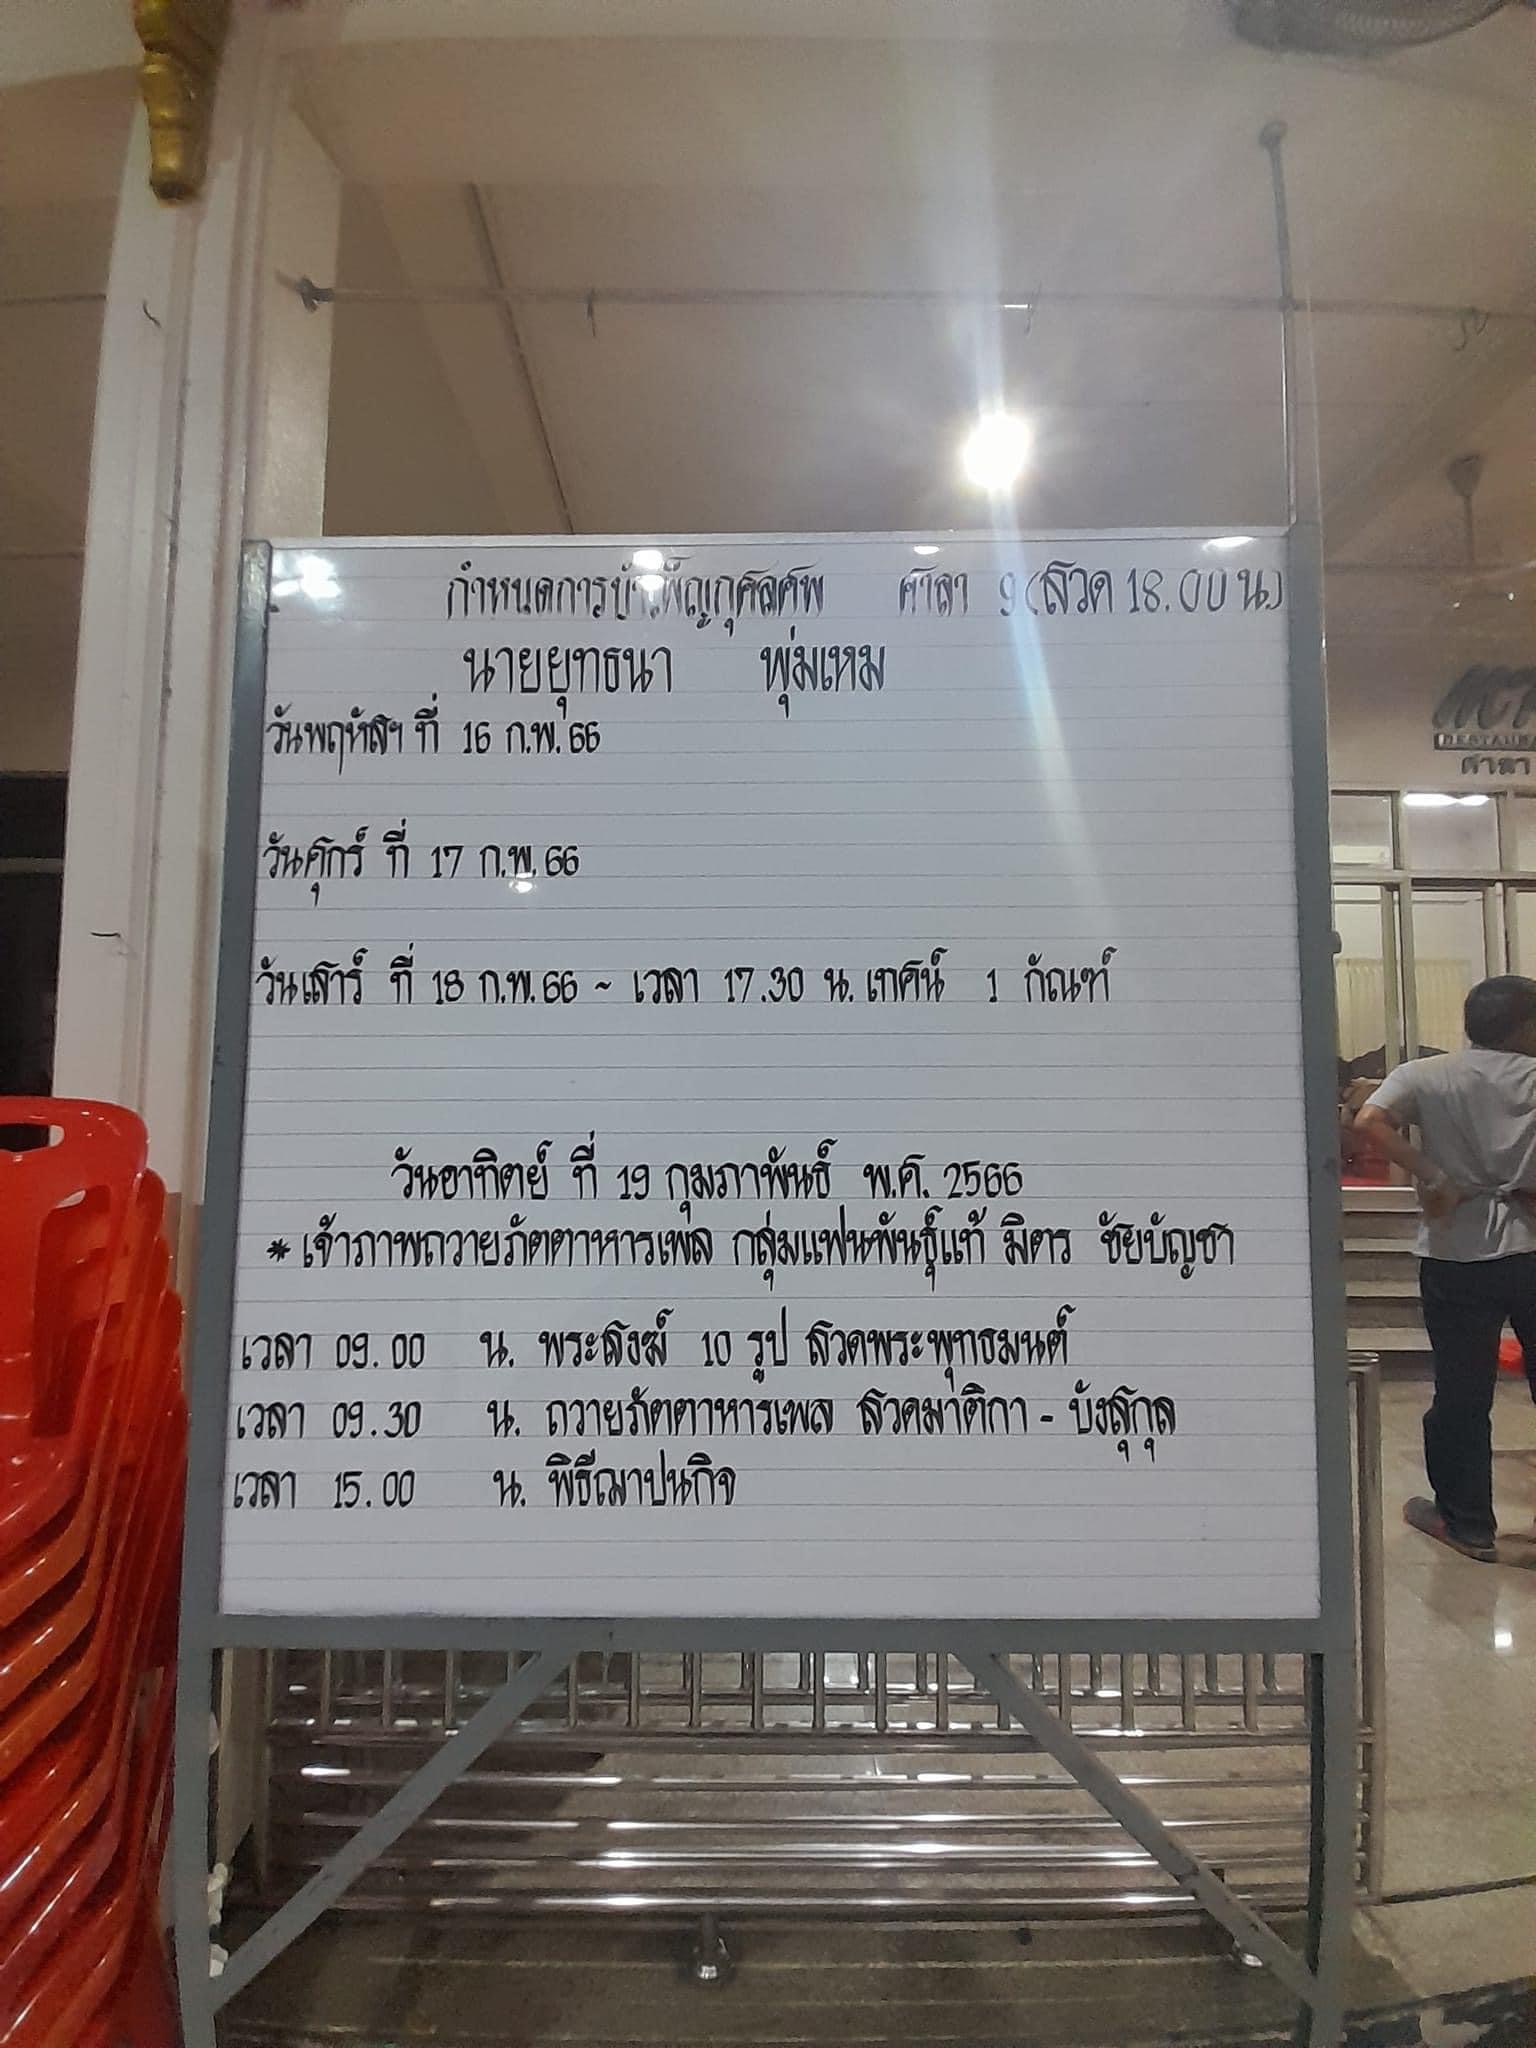 กำหนดการบำเพ็ญกุศลศพ ศาลา 9 (สวด 18.00 น.)
นายยุทธนา พุ่มเหม
วันพฤหัสฯ ที่ 16 ก.พ. 66
วันศุกร์ ที่ 17 ก.พ. 66
วันเสาร์ ที่ 18 ก.พ. 66 ~ เวลา 17.30 น. เทศน์ 1 กัณฑ์
วันอาทิตย์ ที่ 19 กุมภาพันธ์ พ.ศ. 2566
* เจ้าภาพถวายภัตตาหารเพล กลุ่มแฟนพันธุ์แท้ มิตร ชัยบัญชา
เวลา 09.00 น. พระสงฆ์ 10 รูป สวดพระพุทธมนต์
เวลา 09.30 น. ถวายภัตตาหารเพล สวดมาติกา - บังสุกุล
เวลา 15.00 น. พิธีฌาปนกิจ
ศาลา